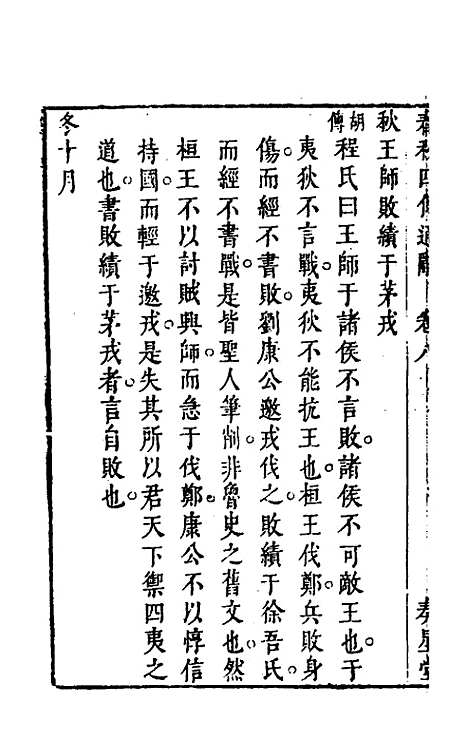 春秋四傳通辭 卷八 奏星堂
秋王師敗績于茅戎
胡傳 程氏曰王師于諸侯不言敗諸侯不可敵王也于
夷狄不言戰夷狄不能抗王也桓王伐鄭兵敗身
傷而經不書敗劉康公邀戎伐之敗績于徐吾氏
而經不書戰是皆聖人筆削非魯史之舊文也然
桓王不以討賊興師而急于伐鄭康公不以惇信
持國而輕于邀戎是失其所以君天下禦四夷之
道也書敗績于茅戎者言自敗也
冬十月